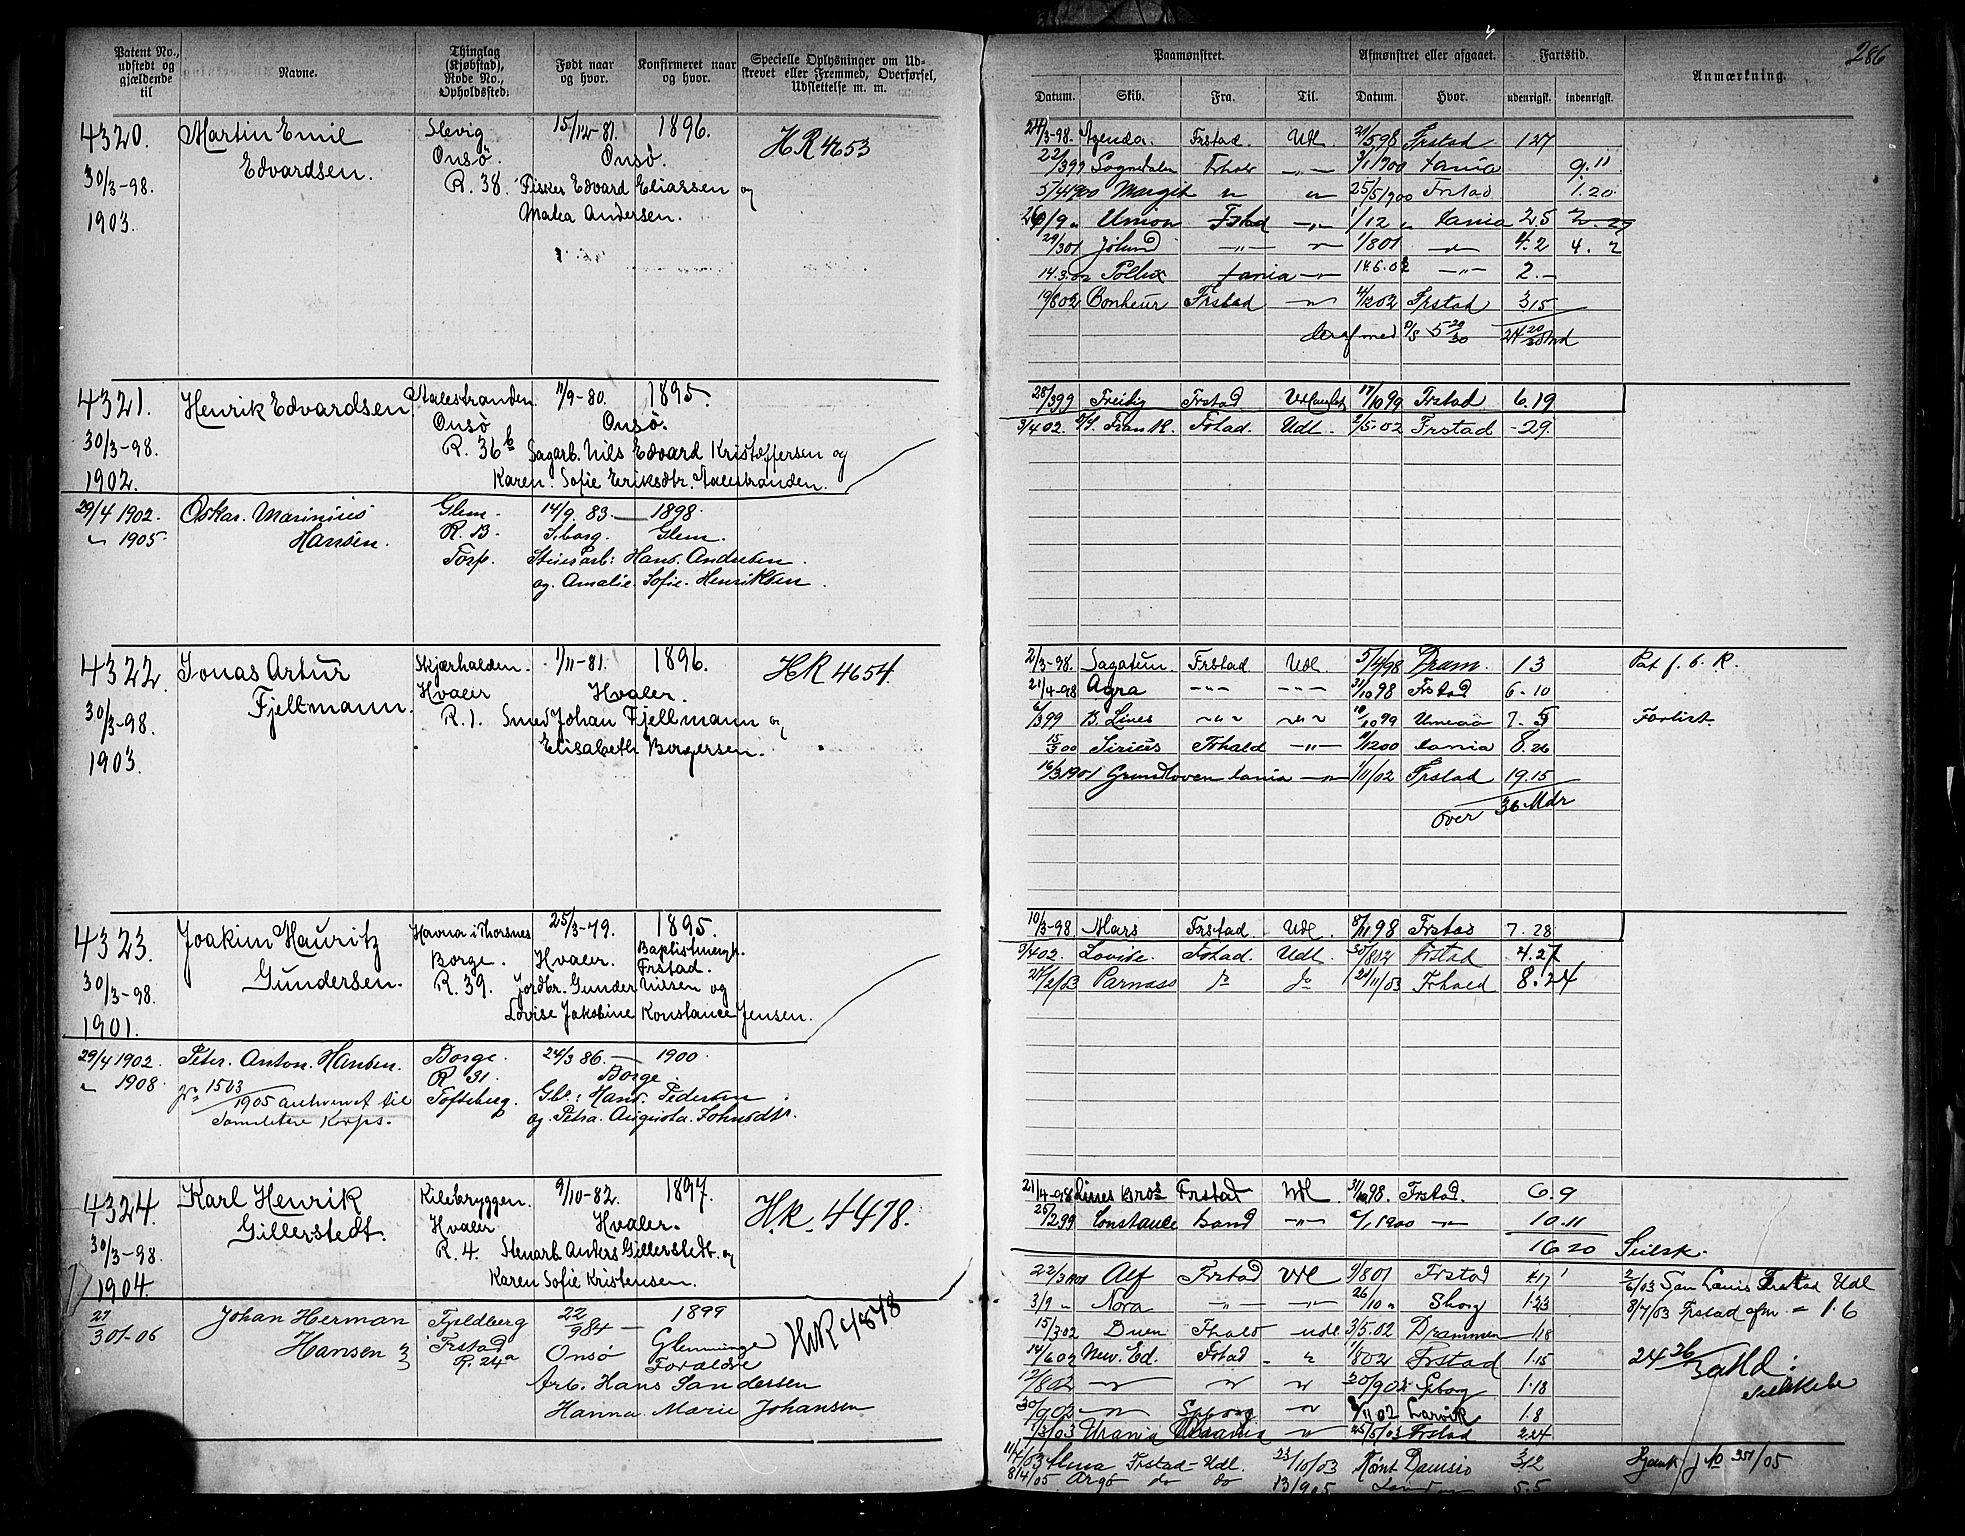 286
Patent No., udstedt og gjældende til
Navne.
Thinglag (Kjøbstad), Rode No., Opholdssted.
Født naar og hvor.
Konfirmeret naar og hvor.
Specielle Oplysninger om Udskrevet eller Fremmed, Overførsel, Udslettelse m. m.
Paamønstret.
Afmønstret eller afgaaet.
Fartstid.
Anmærkning.
Datum. Skib. Fra. Til. Datum. Hvor. udenrigsk. indenrigsk.
4320. Martin Emil Slevig 15/12-81. 1896. HR 4653
Edvardsen. Onsø. Onsø.
30/3-98. R. 38. Fisker Edvard Eliassen og
1903. Andersen.
24/3-98. Agenda. Frstad. Udl. 21/5 98 Frstad 127
22/3 99 Sogndalen Frhald —„— 3/1 1900 tania 9.11
5/4 1900 Margit „ „ 25/5 1900 Frstad 1.20
26/9 „ Union Frstad —„— 1/12 „ tania 2.5 2.27
29/3 01 Jølund —„— „ 1/8 01 „ 4.2 4.2
14.3.02 Pollux tania —„— 14.6.02 —„— 2.—
19/8 02 Bonheur Frstad „ 4/12 02 Frstad 315
deraf med D/S 5 29/30 24 20/30 Md
4321. Henrik Edvardsen Aalestranden 11/9-80. 1895.
Onsø Onsø.
30/3-98. R. 36b Sagarb. Nils Edvard Kristoffersen og
1902. Karen Sofie Eriksdtr. Aalestranden.
28/3 99 Freidig Frstad 17/10 99 Frstad 6.19
3/4 02. D/S. Frank. Frstad. Udl. 2/5-02 Frstad -29
29/4 1902. Oskar. Marinius Glem. 14/9. 83. — 1898.
„ 1905. Hansen. R. 13. S.borg. Glem.
Torp. Hans. Andersen.
og. Amalie. Sofie. Henriksen.
4322. Jonas Artur Skjærhalden. 1/11-81. 1896. HR 4654.
Fjellmann. Hvaler Hvaler.
30/3-98. R. 1. Smed Johan Fjellmann og
1903. Elisabeth Borgersen.
2/3-98. Sagatun. Frstad Udl 5/4 98 Dram. 1 3 Pat f. b. R.
21/4-98 Agra —„— —„— 31/10 98 Frstad 6-10
99 B. Lines „ „ 10/10 99 Umeaa 7.5 Forlist.
15/3 00 Sirius Frhald —„— 9/12 00 tania 8.26
16/3 1901 Grundloven tania „ 1/11/02 Frstad 19.15
over 36 Mdr
4323. Joakim Hauritz Havna i Thorsnes 25/3-79. 1895.
Gundersen. Borge. Hvaler. Baptistmengh. Frstad.
30/3-98. R. 39. Jordbr. Gunder Nilsen og
1901. Lovise Jakobine Konstance Jensen.
10/3-98. Mars Frstad. Udl. 8/11 98 Frstad 7.28
9/4 02. Lovise. Frstad. Udl. 30/8 02 Frstad 4.27
27/2/03 Parnass do do 21/11/03 Frhald 8.24
29/4 1902. Peter. Anton. Hansen. Borge. 24/3 86. — 1900.
„ 1908. R 31. Borge.
Jr: 1503/1905 til Tofteberg. Hans. Pedersen
Korps. og. Petra. Augusta. Johnsdtr.
4324. Karl Henrik Kilebryggen. 9/10-82. 1897. HR. 4478.
Gillerstedt. Hvaler Hvaler.
30/3-98. R. 4. Stenarb Anders Gillerstedt. og
1904. Karen Sofie Kristensen.
21/4-98 Lines Bros Frstad Udl 31/10 98. Frstad. 6.9
25/2 99 Constance Sand —„— 1900 „ 10.11
16 20 Seilsk.
27/3 01-06 Johan Herman Fjeldberg 22/9 84 — 1899 HR 4878
Hansen Frstad Onsø Glemminge
R. 24a Forældre
Arb. Hans Sandersen
Hanna Marie Johansen
22/3 1901 Alf Frstad Udl 9/8 01 Frstad 4.17 2/6/03 San Louis Frstad Udl
3/9 „ Nora —„— —„— 26/10 „ Sborg 1.23 8/7/03 Frstad afm. = 1.6
15/3 02 Duen Fhald udl. 3/5.02 Drammen 1.18
14/6 02 New. Ed. Frstad „ 1/8 02 Frstad 1.15 24 26/30 Md.
12/8 02 „ „ „ 20/9 02 Spborg 1.18 Seilskibe
30/9 02 „ Spborg „ 8/11 02 Larvik 1.8
1/3/03 Urania „ 25/5/03 Frstad 2.24
11/7/03 Alma Frstad — Udl. 23/10/03 3.12
8/4/05 Argo do do 13/9 05 London 5.5